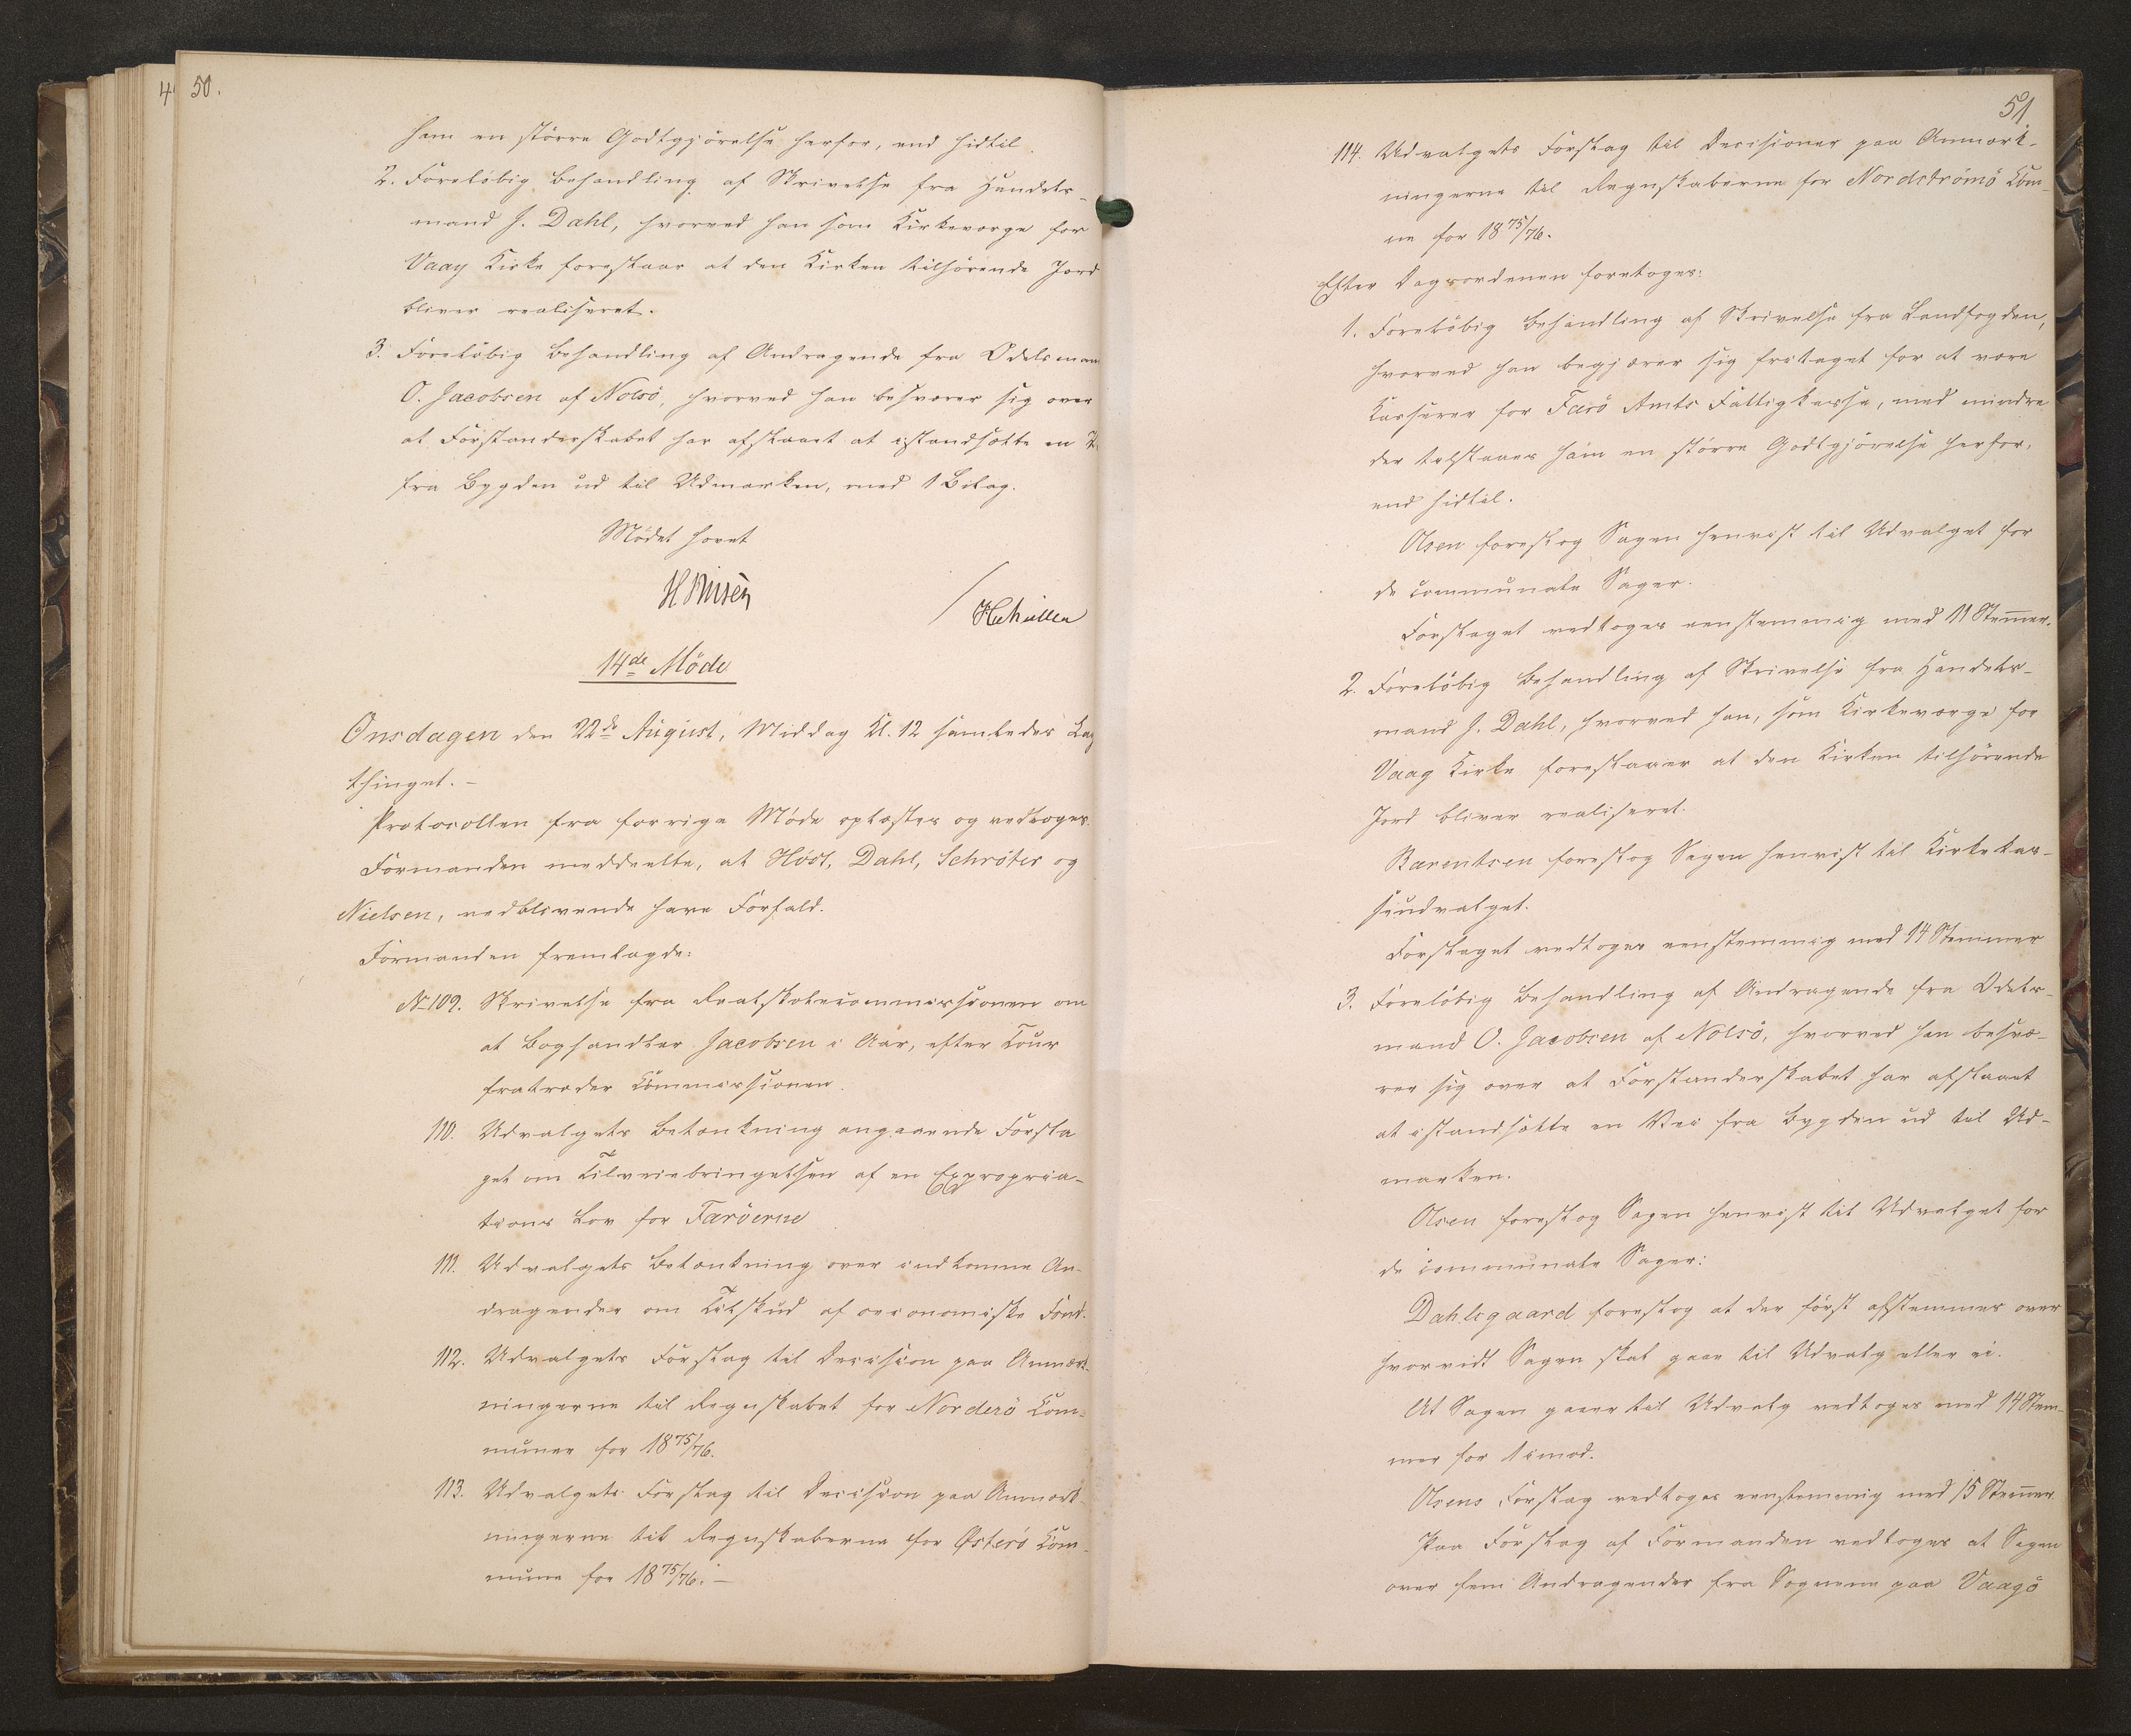 50.
ham en större Godtgjörelse herfor, end hidtil.
2. Forelöbig Behandling af Skrivelse fra Handels-
mand J. Dahl, hvorved han som Kirkeværge for
Vaag Kirke foreslaar at den Kirken tilhörende Jord
bliver realiseret.
3. Forelöbig Behandling af Andragende fra Odelsmand
O. Jacobsen af Nolsö, hvorved han besværer sig over
at Forstanderskabet har afslaaet at istandsætte en
fra Bygden ud til Udmarken, med 1 Bilag.
Mödet hævet
HMüller
14de Möde
Onsdagen den 22de August, Middag Kl. 12 samledes Lag
thinget. -
Protocollen fra forrige Möde oplæstes og vedtoges.
Formanden meddeelte, at Höst, Dahl, Schröter og
Nielsen, vedblivende have Forfald.
Formanden fremlagde:
No 109. Skrivelse fra Realskolecommissionen om
at Boghandler Jacobsen i Aar, efter Tour
fratræder Commissionen.
110. Udvalgets Betænkning angaaende Forsla
get om Tilveiebringelsen af en Expropria-
tions Lov for Færöerne
111. Udvalgets Betænkning over indkomne An-
dragender om Tilskud af oeconomiske Fond.
112. Udvalgets Forslag til Decision paa Anmærk-
ningerne til Regnskabet for Norderö Com-
muner for 1875/76.
113. Udvalgets Forslag til Decision paa Anmærk-
ningerne til Regnskaberne for Österö Com-
mune for 1875/76. -
51
114. Udvalgets Forslag til Decisioner paa Anmærk-
ningerne til Regnskaberne for Nordströmö Com-
ne for 1875/76.
Efter Dagsordenen foretoges:
1. Forelöbig Behandling af Skrivelse fra Landfogden,
hvorved han begjærer sig fritaget for at være
Kasserer for Færö Amts Fattigkasse, med mindre
der tilstaaes ham en större Godtgjörelse herfor,
end hidtil.
Olsen foreslog Sagen henvist til Udvalget for
de communale Sager.
Forslaget vedtoges eenstemmig med 11 Stemmer.
2. Forelöbig Behandling af Skrivelse fra Handels-
mand J. Dahl, hvorved han, som Kirkeværge for
Vaag Kirke foreslaaer at den Kirken tilhörende
Jord bliver realiseret.
Barentsen foreslog Sagen henvist til Kirkekas-
seudvalget.
Forslaget vedtoges eenstemmig med 14 Stemmer
3. Forelöbig Behandling af Andragende fra Odels-
mand O. Jacobsen af Nolsö, hvorved han besvæ-
rer sig over at Forstanderskabet har afslaaet
at istandsætte en Vei fra Bygden ud til Ud-
marken.
Olsen foreslog Sagen henvist til Udvalget for
de communale Sager:
Dahlsgaard foreslog at der först afstemmes over
hvorvidt Sagen skal gaae til Udvalg eller ei.
At Sagen gaaer til Udvalg vedtoges med 14 Stem-
mer for 1 imod.
Olsens Forslag vedtoges eenstemmig med 15 Stemmer.
Paa Forslag af Formanden vedtoges at Sagen
over fem Andragender fra Sognene paa Vaagö